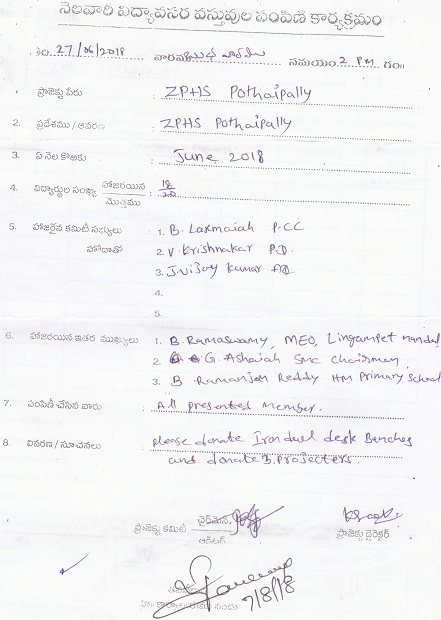 నెలవారి విద్యావసర వస్తువుల పంపిణి కార్యక్రమం
తేది 27/06/2018 వారము బుధ వారము సమయం 2 P.M. గం॥
ప్రాజెక్టు పేరు : ZPHS Pothaipally
2. ప్రదేశము / ఆవరణ : ZPHS Pothaipally
3. ఏ నెల కొఱకు : June 2018
4. విద్యార్థుల సంఖ్య హాజరయిన / మొత్తము : 18 / 20
5. హాజరైన కమిటీ సభ్యులు : 1. B. Laxmaiah P.CC
హోదాతో 2. V. Krishnakar P.D.
3. J. Vijoy Kumar
4.
5.
6. హాజరయిన ఇతర ముఖ్యులు : 1. B. Ramaswamy, MEO, Lingampet mandal
2. G. Ashaiah SMC Chairmen
3. B. Ramanjan Reddy HM Primary School
7. పంపిణీ చేసిన వారు : All presented member.
8. వివరణ / సూచనలు : please donate Iron duel desk Benches
and donate 3. projecters.
ప్రాజెక్టు కమిటీ చైర్మెన్ / ఆడిటర్ ప్రాజెక్టు డైరెక్టర్
7/8/18